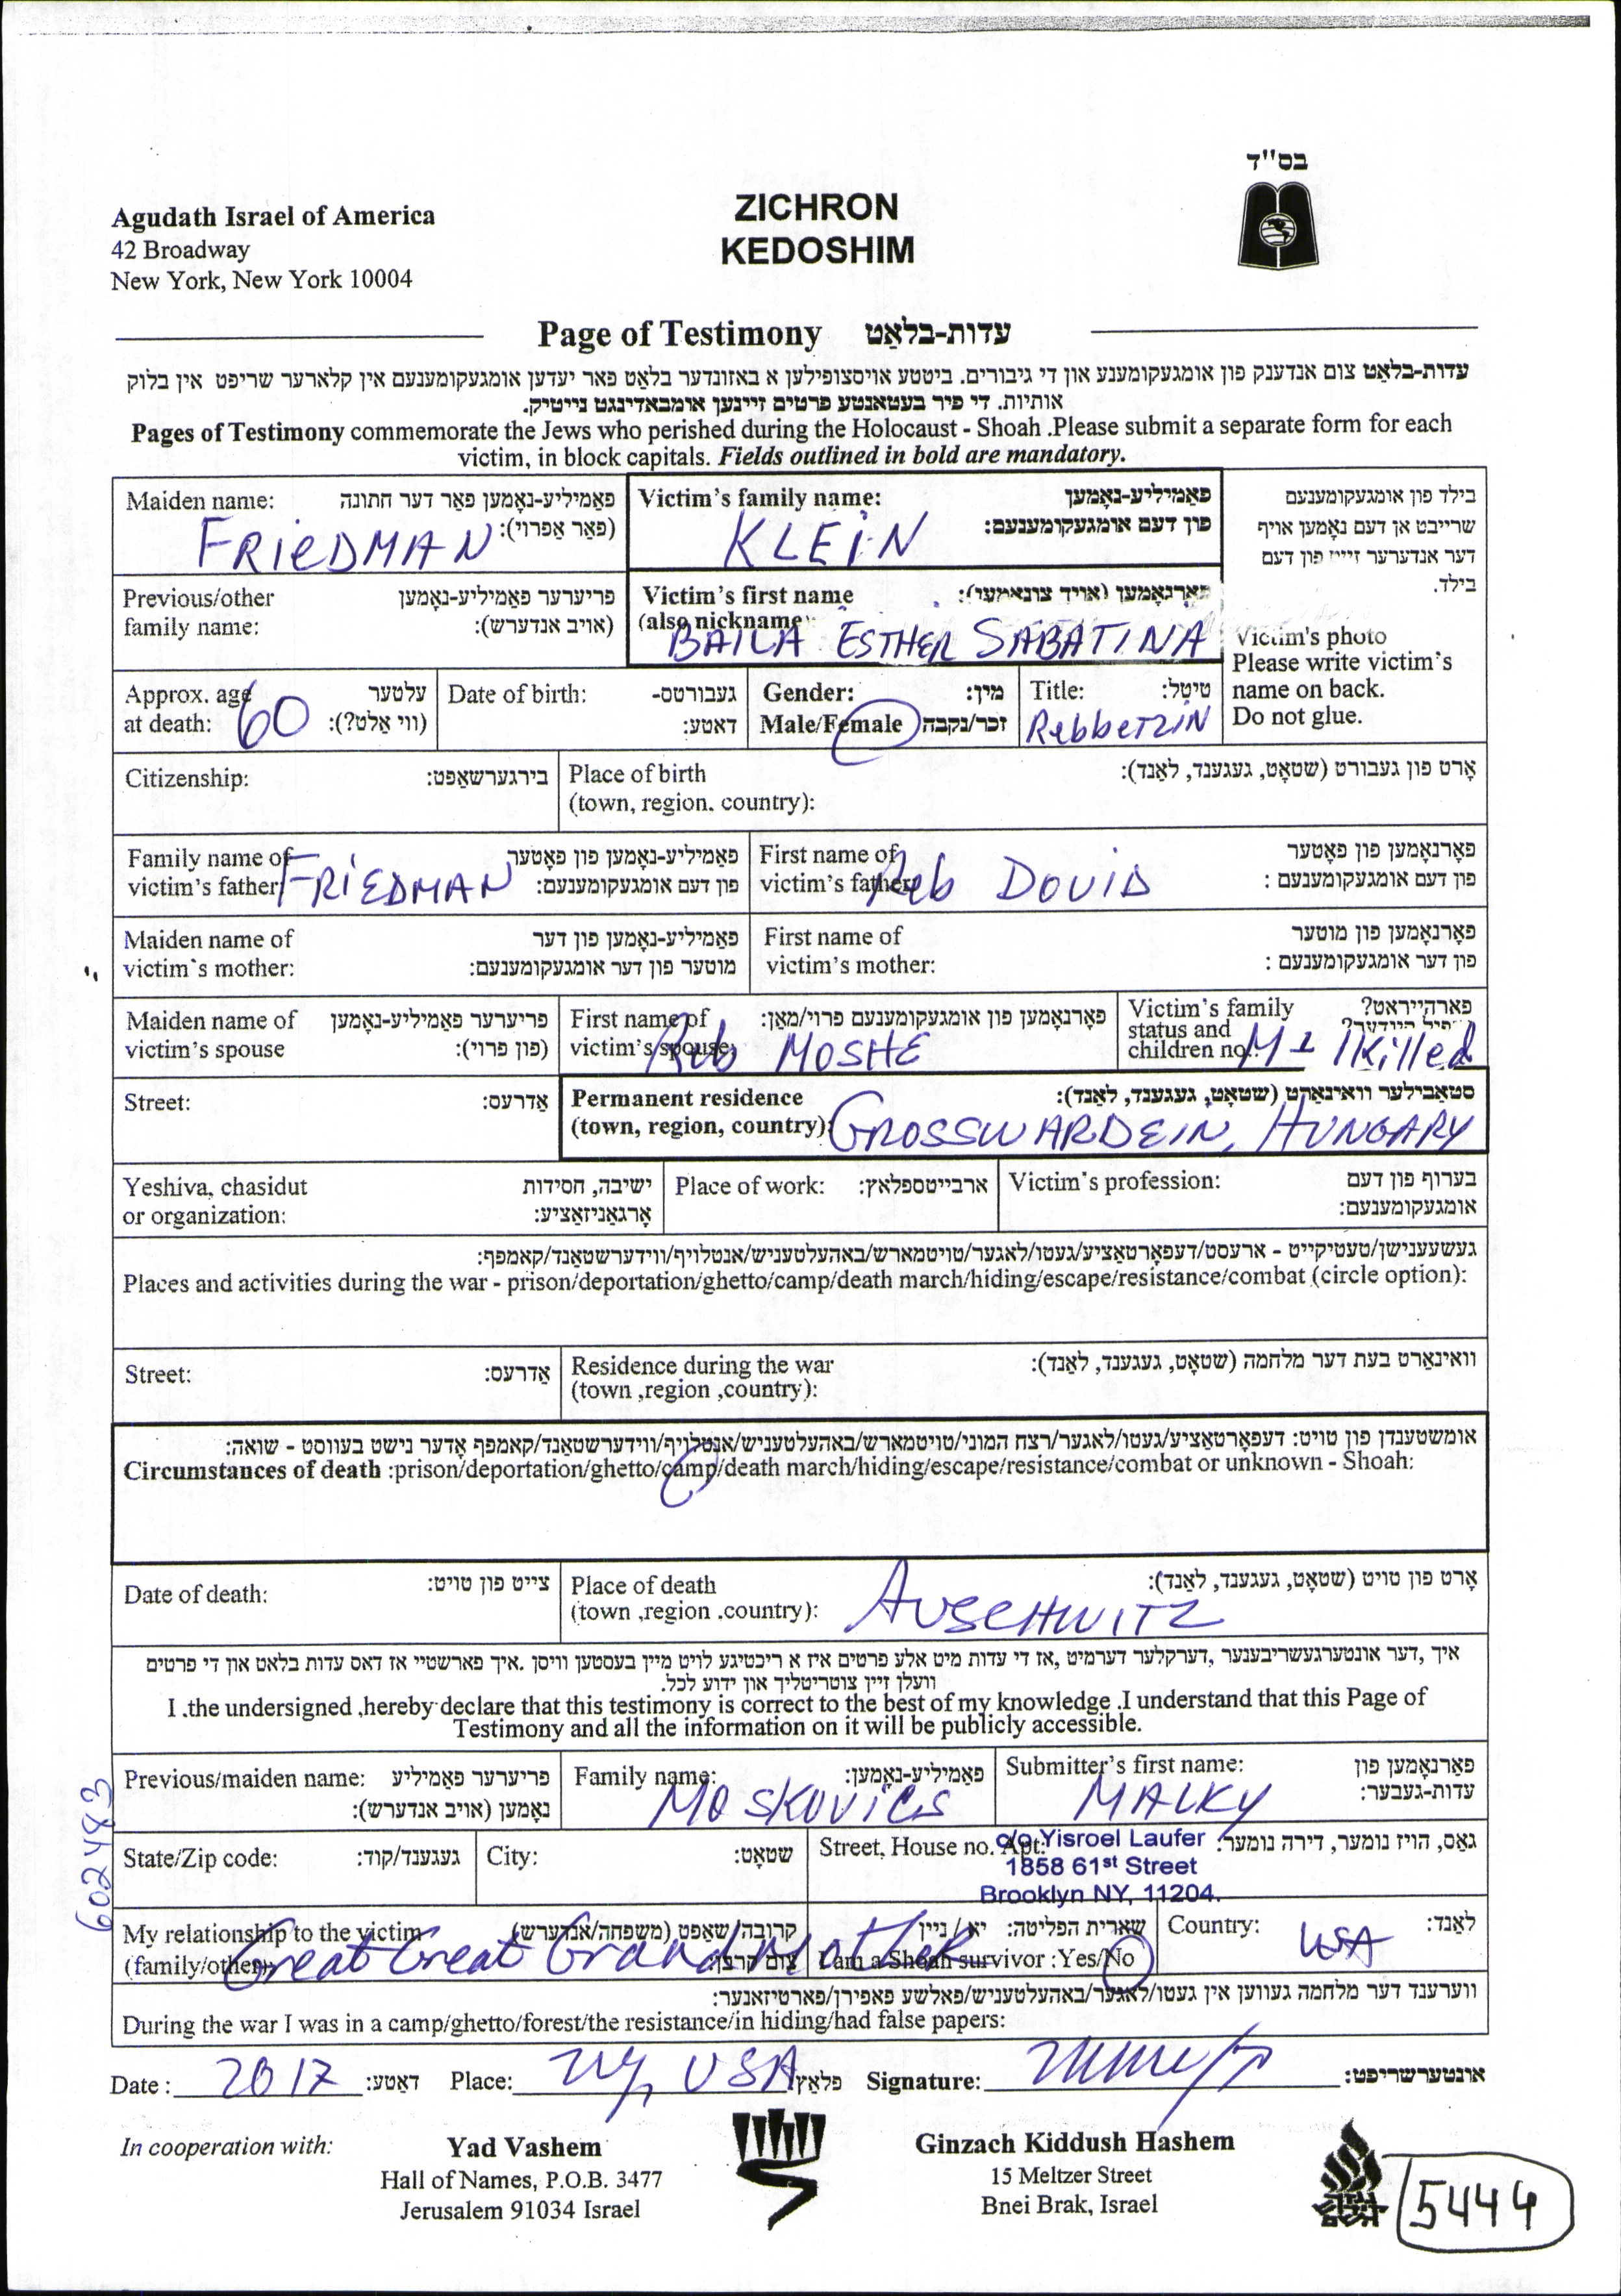 בס"ד
Agudath Israel of America
42 Broadway
New York, New York 10004
ZICHRON
KEDOSHIM
Page of Testimony עדות-בלאַט
עדות-בלאַט צום אנדענק פון אומגעקומענע און די גיבורים. ביטטע אויסצופילען א באזונדער בלאט פאר יעדען אומגעקומענעם אין קלארער שריפט אין בלוק
אותיות. די פיר בעטאנטע פרטים זיינען אומבאדינגט נייטיק.
Pages of Testimony commemorate the Jews who perished during the Holocaust - Shoah .Please submit a separate form for each
victim, in block capitals. Fields outlined in bold are mandatory.
Maiden name: פאַמיליע-נאָמען פאַר דער חתונה
(פאַר אַפרוי):
FRIEDMAN
Victim's family name: פאַמיליע-נאָמען
פון דעם אומגעקומענעם:
KLEIN
בילד פון אומגעקומענעם
שרייבט אן דעם נאָמען אויף
דער אנדערער זייט פון דעם
בילד.
Victim's photo
Please write victim's
name on back.
Do not glue.
Previous/other פריערער פאַמיליע-נאָמען
family name: (אויב אנדערש):
Victim's first name
(also nickname
BAILA ESTHER SABATINA
Approx. age עלטער
at death: (ווי אַלט?):
60
Date of birth: געבורטס-
דאטע:
Gender: מין:
Male/Female זכר/נקבה
Title: טיטל:
Rebbetzin
Citizenship: בירגערשאַפט:
Place of birth אָרט פון געבורט (שטאָט, געגענד, לאַנד):
(town, region. country):
Family name of פאַמיליע-נאָמען פון פאָטער
victim's father: פון דעם אומגעקומענעם:
FRIEDMAN
First name of פאָרנאָמען פון פאָטער
victim's father: פון דעם אומגעקומענעם :
Reb DOVID
Maiden name of פאַמיליע-נאָמען פון דער
victim's mother: מוטער פון דער אומגעקומענעם:
First name of פאָרנאָמען פון מוטער
victim's mother: פון דער אומגעקומענעם :
Maiden name of פריערער פאַמיליע-נאָמען
victim's spouse (פון פרוי):
First name of פאָרנאָמען פון אומגעקומענעם פרוי/מאַן:
victim's spouse:
Reb MOSHE
Victim's family פארהייראט?
status and
children no.:
M 1 Killed
Street: אַדרעס:
Permanent residence סטאַבילער וואוינאָרט (שטאָט, געגענד, לאַנד):
(town, region, country):
GROSSWARDEIN, HUNGARY
Yeshiva, chasidut ישיבה, חסידות
or organization: אָרגאַניזאַציע:
Place of work: ארבייטספלאץ:
Victim's profession: בערוף פון דעם
אומגעקומענעם:
געשעענישן/טעטיקייט - ארעסט/דעפאָרטאַציע/געטו/לאגער/טויטמארש/באהעלטעניש/אנטלויף/ווידערשטאַנד/קאמפף:
Places and activities during the war - prison/deportation/ghetto/camp/death march/hiding/escape/resistance/combat (circle option):
Street: אַדרעס:
Residence during the war וואוינאָרט בעת דער מלחמה (שטאָט, געגענד, לאַנד):
(town ,region ,country):
אומשטענדן פון טויט: דעפאָרטאַציע/געטו/לאגער/רצח המוני/טויטמארש/באהעלטעניש/אַנטלויף/ווידערשטאַנד/קאמפף אָדער נישט בעווסט - שואה:
Circumstances of death :prison/deportation/ghetto/camp/death march/hiding/escape/resistance/combat or unknown - Shoah:
Date of death: צייט פון טויט:
Place of death אָרט פון טויט (שטאָט, געגענד, לאַנד):
(town ,region .country):
AUSCHWITZ
איך ,דער אונטערגעשריבענער ,דערקלער דערמיט ,אז די עדות מיט אלע פרטים איז א ריכטיגע לויט מיין בעסטען וויסן .איך פארשטיי אז דאס עדות בלאט און די פרטים
וועלן זיין צוטריטליך און ידוע לכל.
I .the undersigned ,hereby declare that this testimony is correct to the best of my knowledge .I understand that this Page of
Testimony and all the information on it will be publicly accessible.
Previous/maiden name: פריערער פאַמיליע
נאָמען (אויב אנדערש):
Family name: פאַמיליע-נאָמען:
MOSKOVICS
Submitter's first name: פאָרנאָמען פון
עדות-געבער:
MALKY
State/Zip code: געגענד/קוד:
City: שטאָט:
Street, House no. Apt: גאַס, הויז נומער, דירה נומער:
c/o Yisroel Laufer
1858 61st Street
Brooklyn NY, 11204.
My relationship to the victim קרובה/שאַפט (משפחה/אנדערש)
(family/other): צום קרבן
Great Great Grandmother
שארית הפליטה: יא / ניין
I am a Shoah survivor :Yes/No
Country: לאַנד:
USA
ווערענד דער מלחמה געווען אין געטו/לאגער/באהעלטעניש/פאלשע פאפירן/פארטיזאנער:
During the war I was in a camp/ghetto/forest/the resistance/in hiding/had false papers:
Date : 2017 דאַטע: Place: NY, USA פלאַץ Signature: אונטערשריפט:
In cooperation with:
Yad Vashem
Hall of Names, P.O.B. 3477
Jerusalem 91034 Israel
Ginzach Kiddush Hashem
15 Meltzer Street
Bnei Brak, Israel
5444
602483